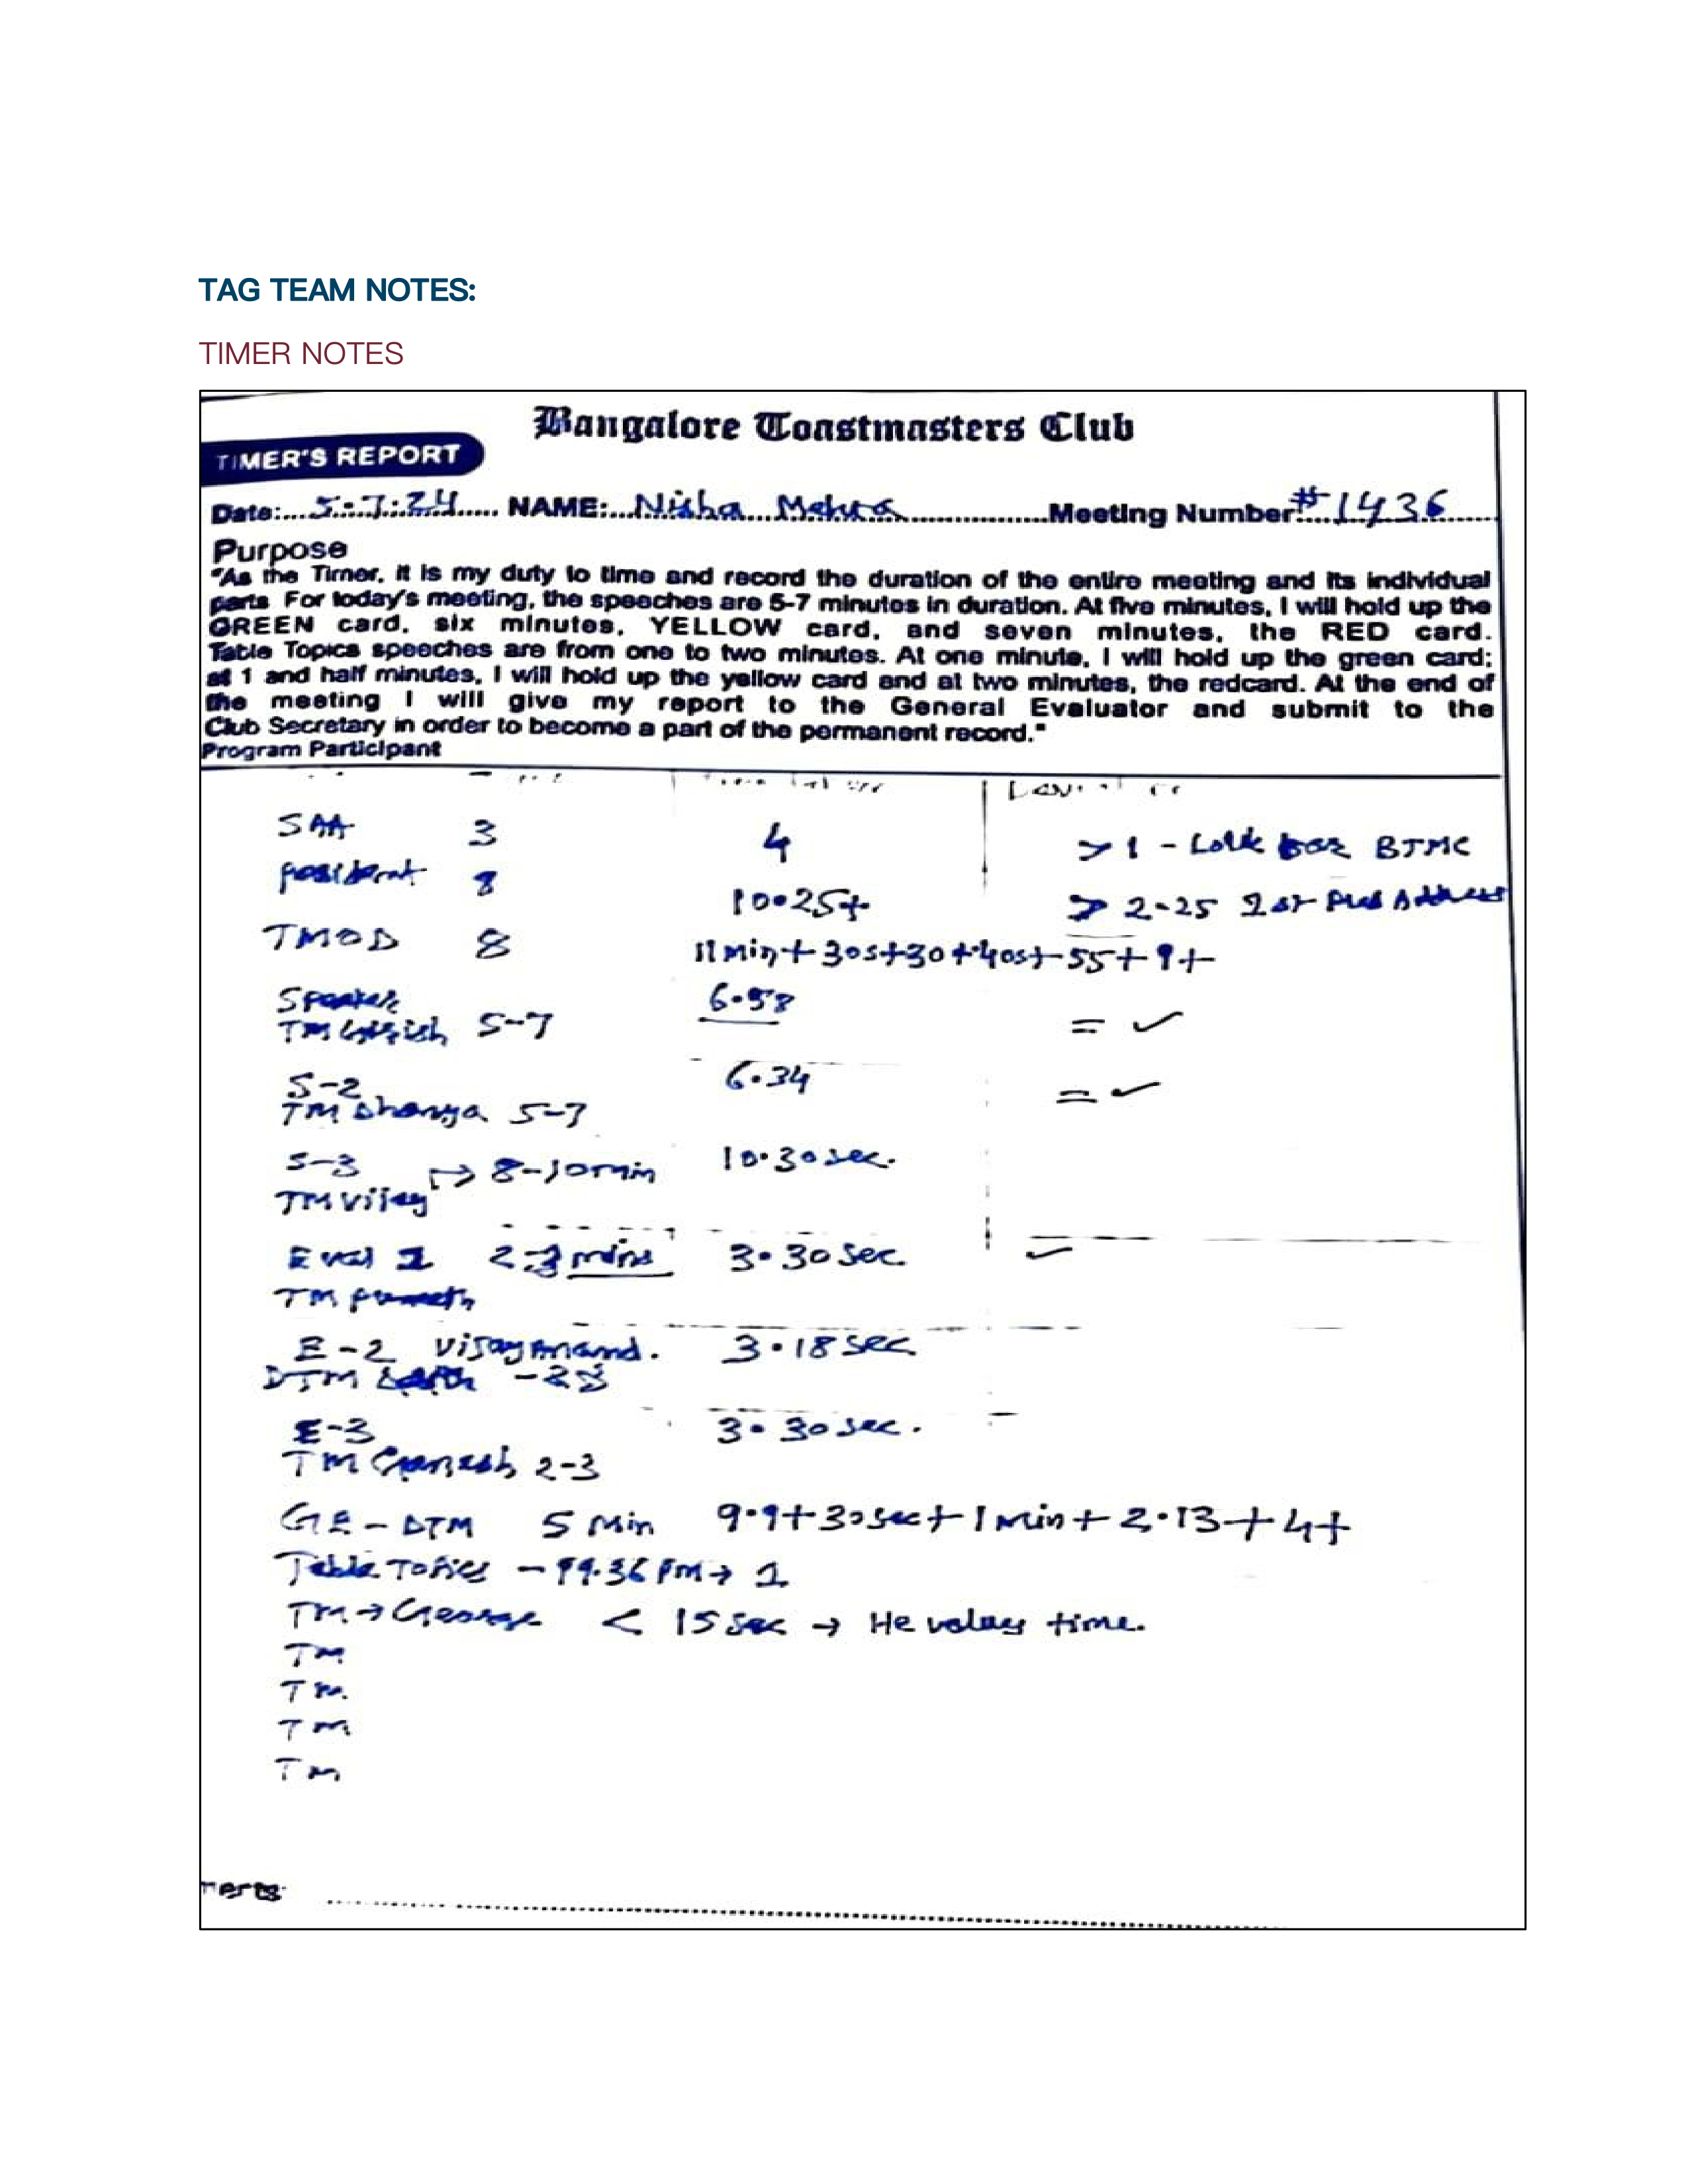 TAG TEAM NOTES:
TIMER NOTES
Bangalore Toastmasters Club
TIMER'S REPORT
Date:....5:7:24..... NAME:...Nisha Mehra..............Meeting Number:#1436
Purpose
"As the Timer, it is my duty to time and record the duration of the entire meeting and its individual
parts For today's meeting, the speeches are 5-7 minutes in duration. At five minutes, I will hold up the
GREEN card, six minutes, YELLOW card, and seven minutes, the RED card.
Table Topics speeches are from one to two minutes. At one minute, I will hold up the green card;
at 1 and half minutes, I will hold up the yellow card and at two minutes, the redcard. At the end of
the meeting I will give my report to the General Evaluator and submit to the
Club Secretary in order to become a part of the permanent record."
Program Participant
SAA 3 4 > 1 - BTMC
President 8 10.25+ > 2-25 1st Address
TMOD 8 11min+30s+30+40s+55+9+
Speaker 6.58
TM 5-7 = ✓
S-2 6.34
TM Dhanya 5-7 = ✓
S-3 → 8-10min 10.30sec.
TM Vijay
Eval 1 2-3 mins 3.30 Sec ✓
TM
E-2 Vijay Anand. 3.18 sec
DTM
E-3 3.30 sec.
TM Ganesh 2-3
GE - DTM 5 Min 9.9+30sec+1min+2.13+4+
Table Topics - 36 PM → 1
TM → George < 15 sec → He values time.
TM
TM
TM
TM